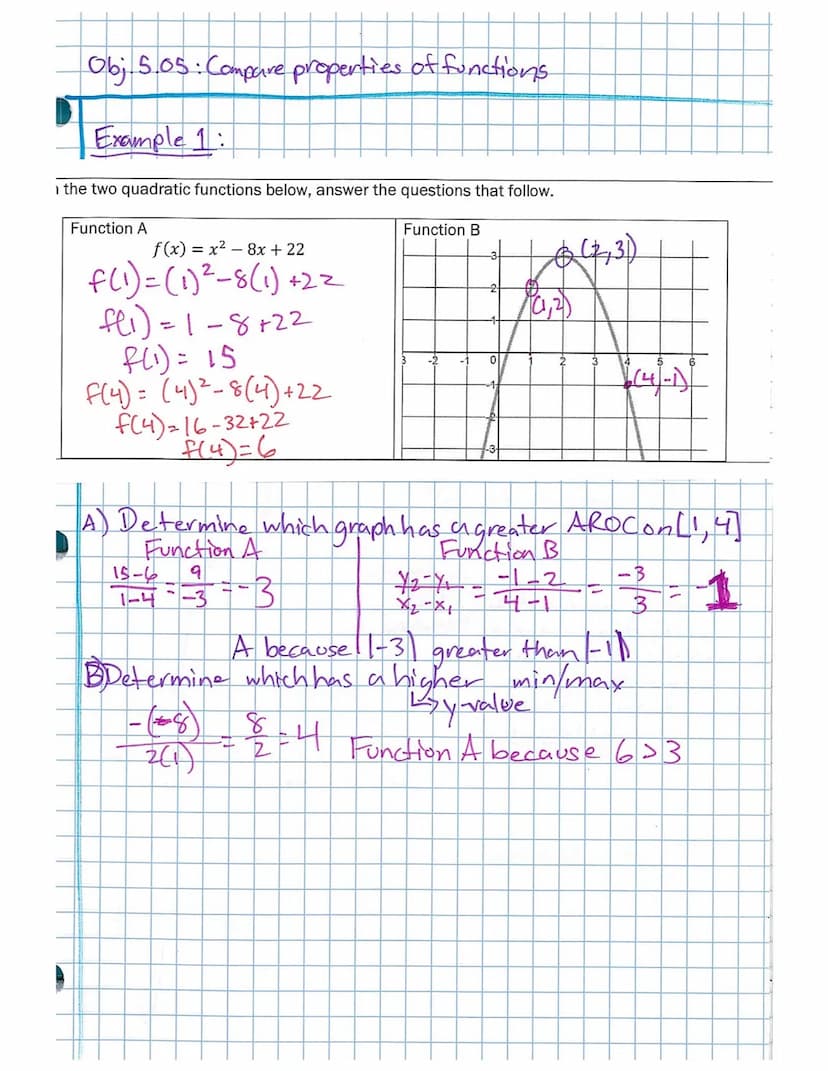 Obj. 5.05: Compare properties of functions
Example 1:
the two quadratic functions below, answer the questions that follow.
Function A
f(x) = x² – 8x + 22
f(1)=(1)²-8(1)+22
f(1)=1-8+22
f(1)= 15
f(4)= (4)²-8(4)+22
f(4)=16-32+22
f(4)=6
Function B
(2,3)
3
2
(1,2)
1
3 -2 -1 0 1 2 3 4 5 6
(4,-1)
-1
-2
-3
A) Determine which graph has a greater AROC on [1,4]
Function A
15-6/1-4 = 9/-3 = -3
Function B
y₂-y₁/x₂-x₁ = -1-2/4-1 = -3/3 = -1
A because |-3| greater than |-1|
B) Determine which has a higher min/max
↳ y-value
-(-8)/2(1) = 8/2 = 4 Function A because 6>3